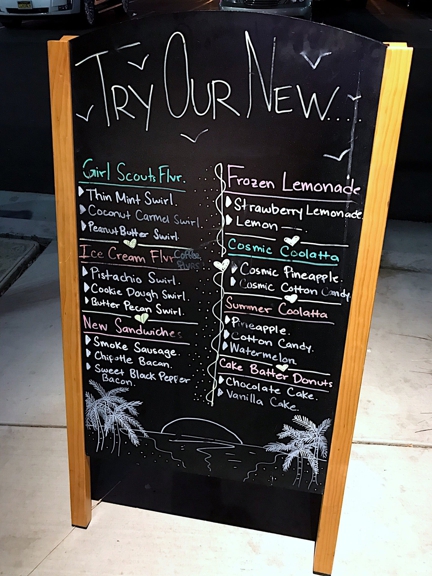 Try Our New...
Girl Scouts Flvr.
Thin Mint Swirl.
Coconut Carmel Swirl.
Peanut Butter Swirl.
Ice Cream Flvr
Pistachio Swirl.
Cookie Dough Swirl.
Butter Pecan Swirl.
New Sandwiches
Smoke Sausage.
Chipotle Bacon.
Sweet Black Pepper
Bacon.
Frozen Lemonade
Strawberry Lemonade
Lemon
Cosmic Coolatta
Cosmic Pineapple.
Cosmic Cotton Candy
Summer Coolatta
Pineapple.
Cotton Candy.
Watermelon
Cake Batter Donuts
Chocolate Cake.
Vanilla Cake.